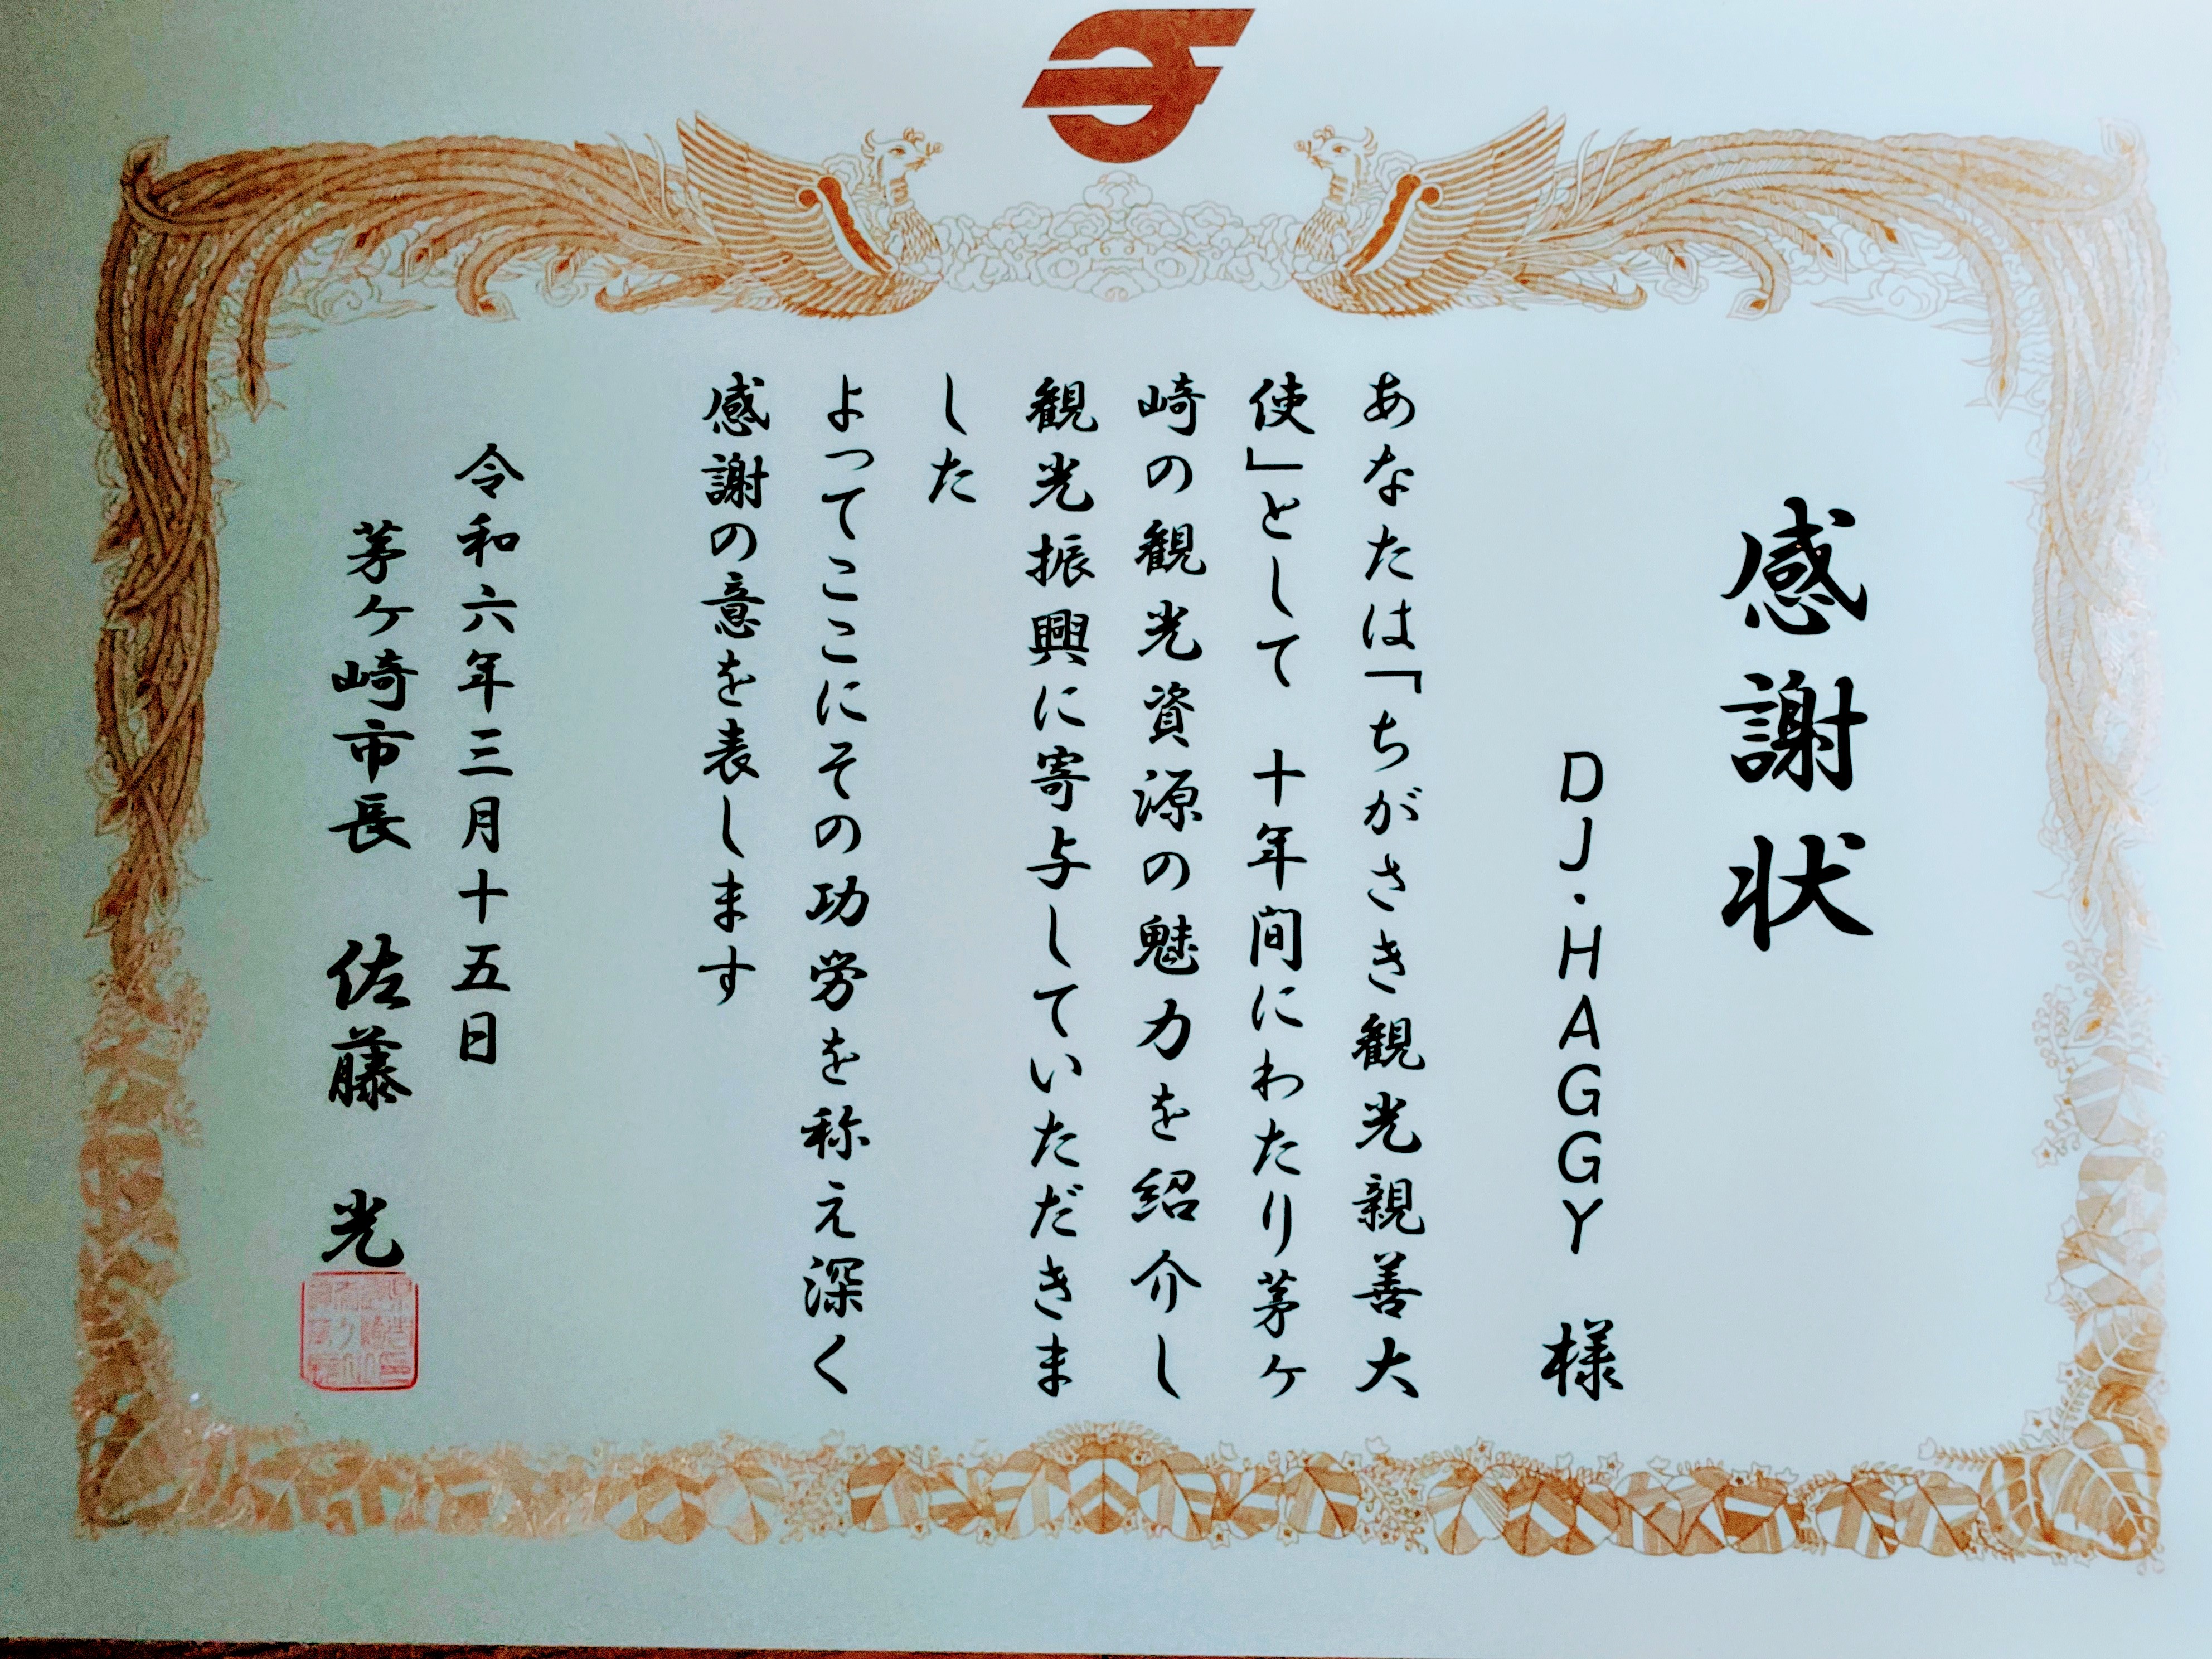 感謝状
DJ・HAGGY 様
あなたは「ちがさき観光親善大
使」として 十年間にわたり茅ヶ
崎の観光資源の魅力を紹介し
観光振興に寄与していただきま
した
よってここにその功労を称え深く
感謝の意を表します
令和六年三月十五日
茅ヶ崎市長 佐藤 光